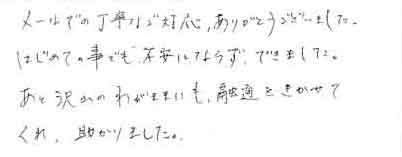 メールでの丁寧なご対応、ありがとうございました。
はじめての事でも不安にならず、できました。
あと沢山のわがままにも、融通をきかせて
くれ、助かりました。